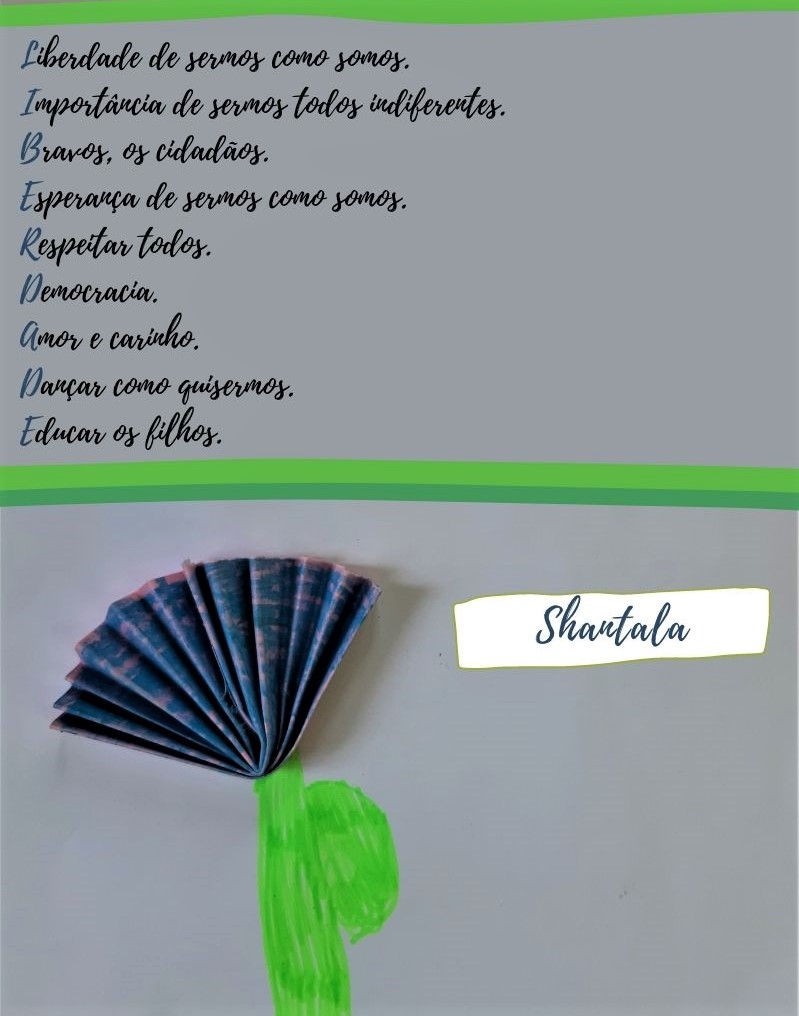 Liberdade de sermos como somos.
Importância de sermos todos indiferentes.
Bravos, os cidadãos.
Esperança de sermos como somos.
Respeitar todos.
Democracia.
Amor e carinho.
Dançar como quisermos.
Educar os filhos.
Shantala